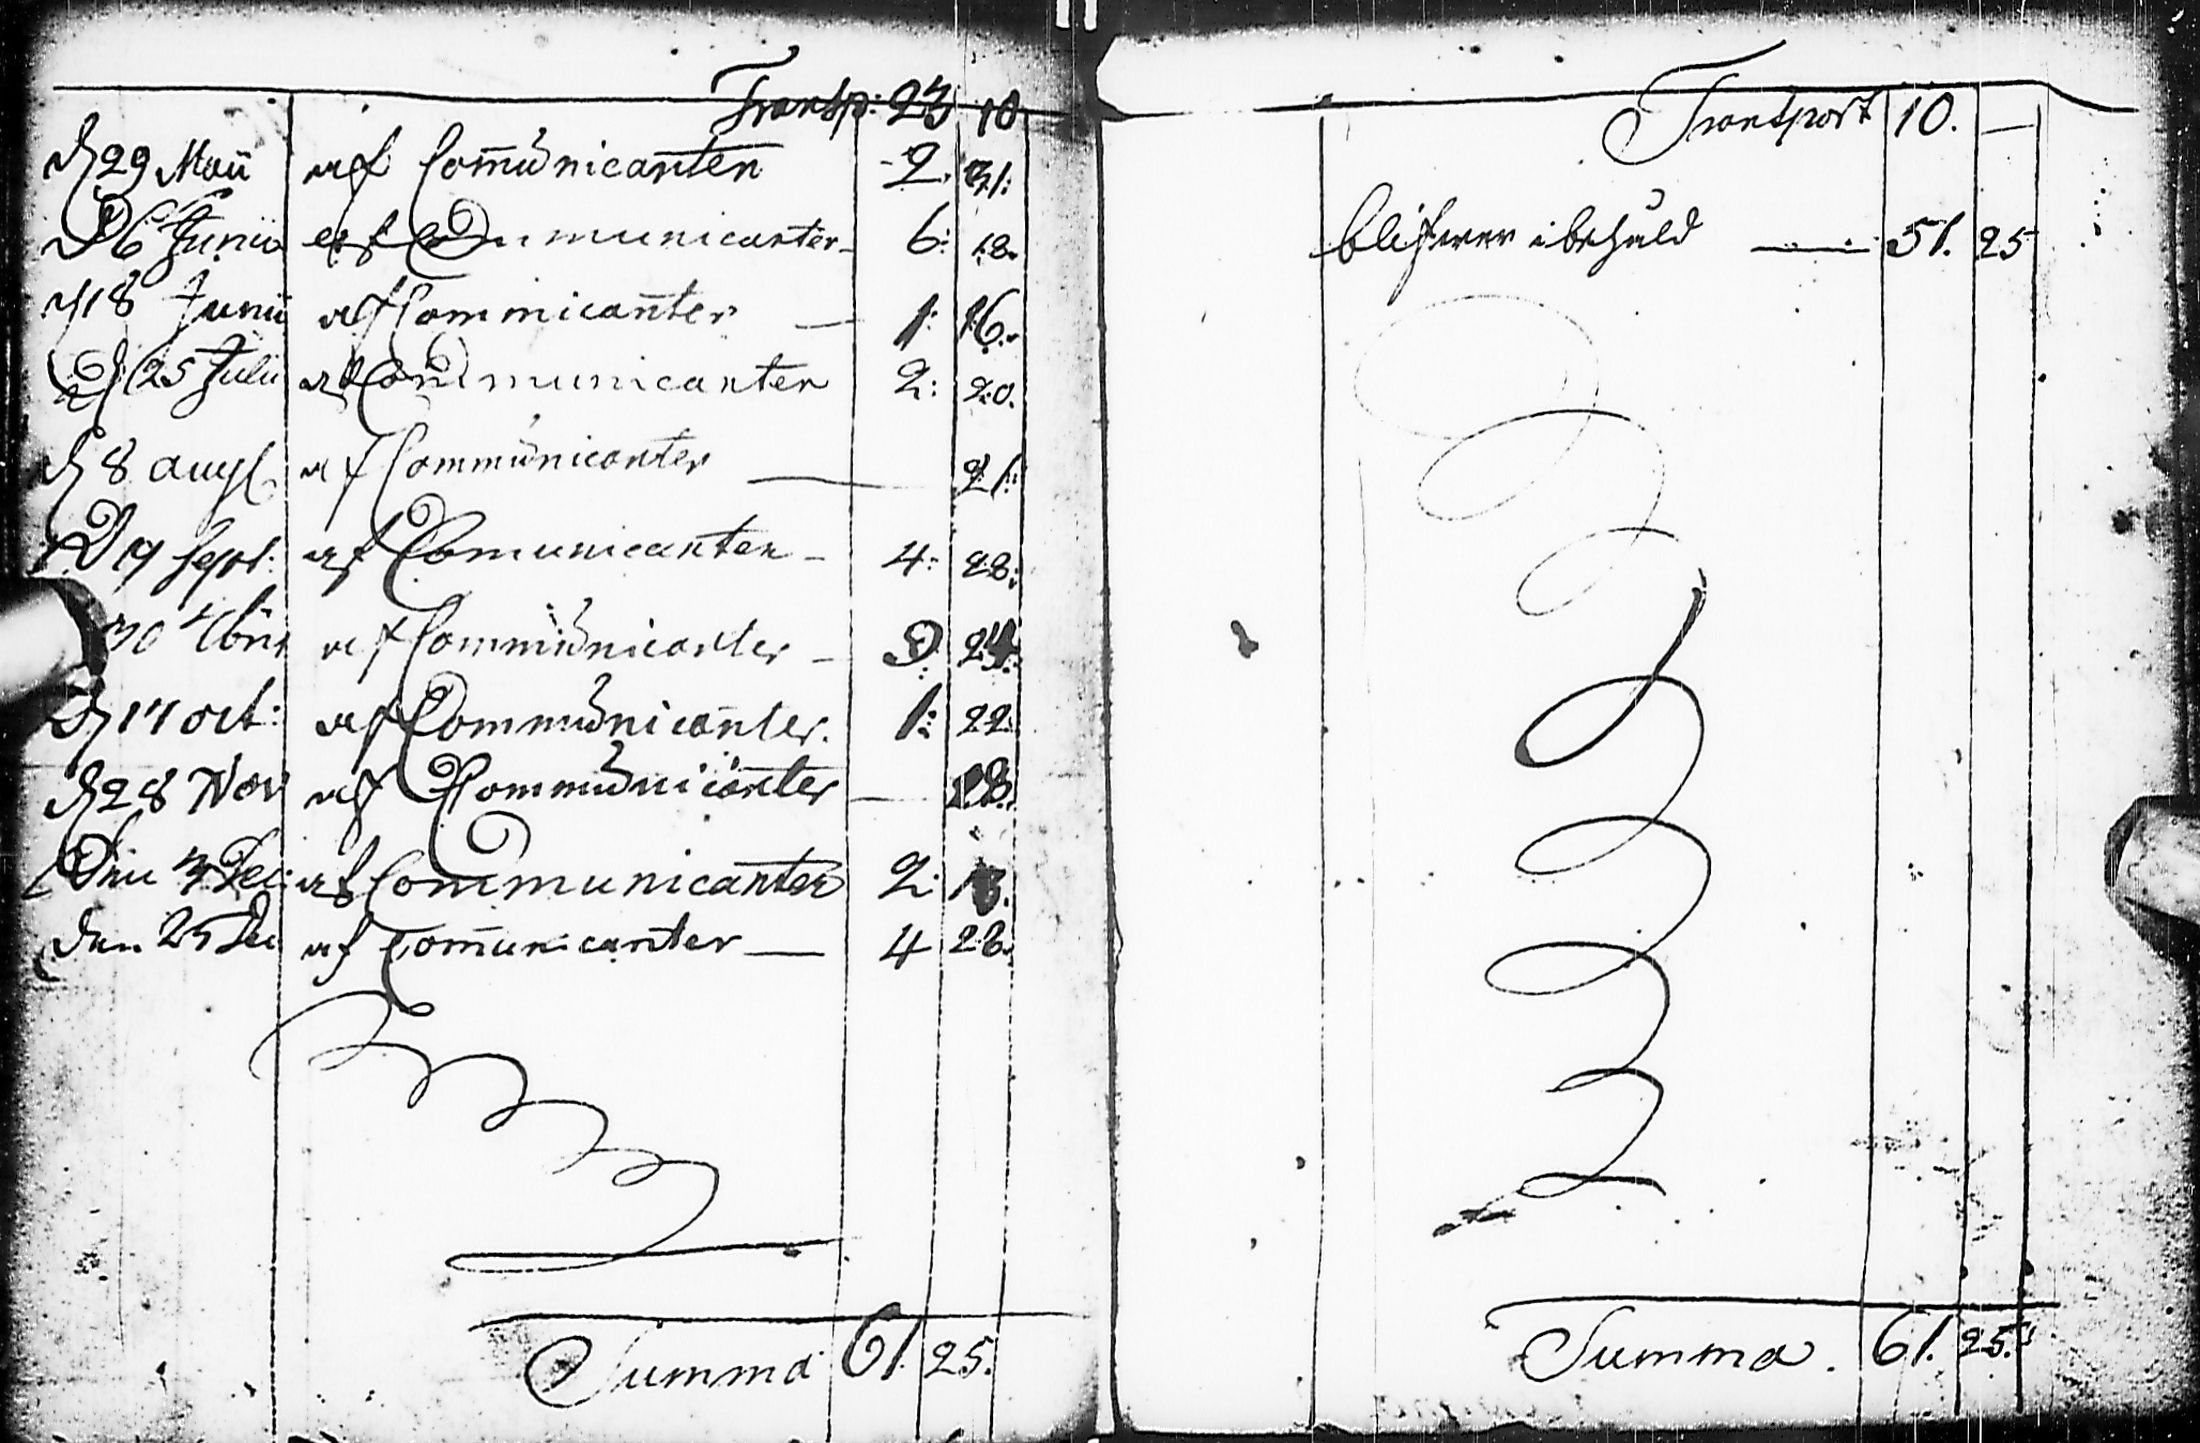 Transp: 23 10
d 29 Maii af Com̄unicanten 2. 31:
D 6 Junii af Communicanter 6: 18.
d 18 Junii af Commicanter 1: 16.
d 25 Julii af Communicanter 2: 20.
d 8 augl af Communicanter 21:
D 19 Sept: af Communicanter 4: 28:
30 af Communicanter 24
d 17 oct: af Communicanter. 1: 22.
d 28 Nov af Communicanter 18.
Den 3 Dec: af Communicanter 2:
Den 25 Dec af Com̄unicanter 4 28.
Summa 61. 25.
Transport 10. —
blifwer i behåld 51. 25
Summa. 61. 25.